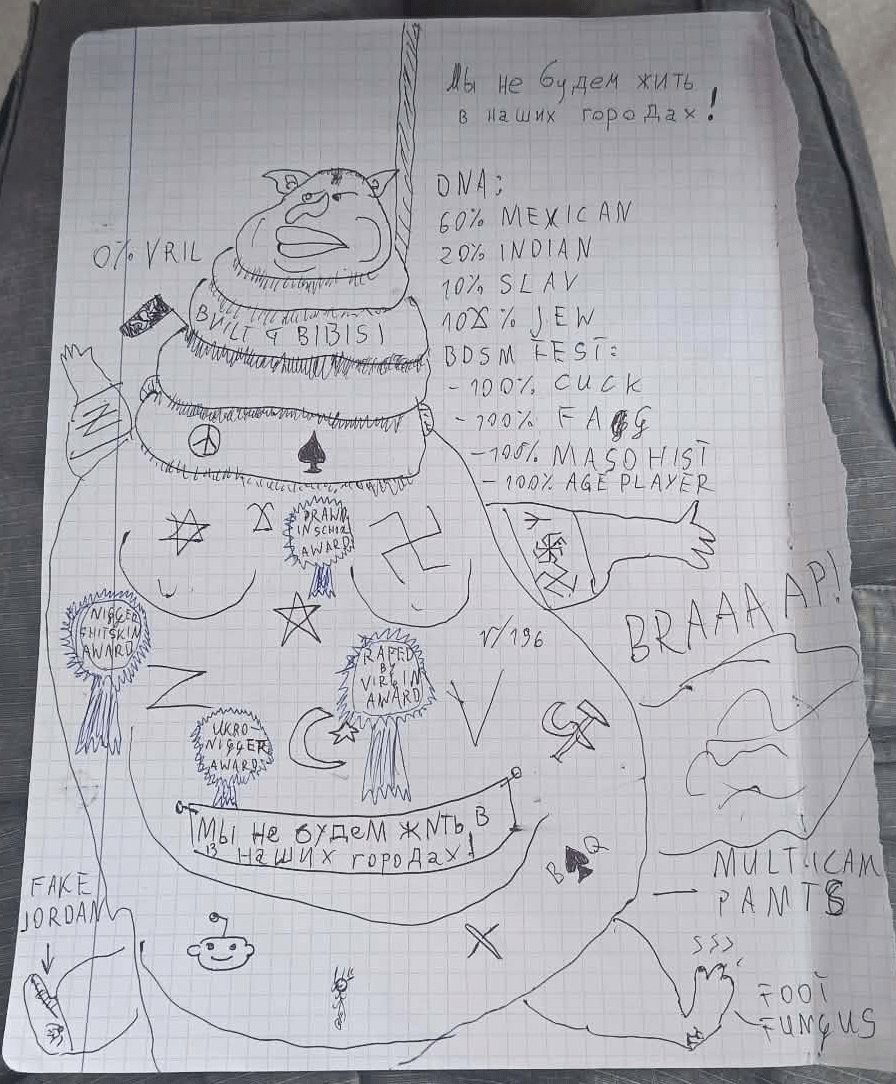 Мы не будем жить
в наших городах!
DNA:
60% MEXICAN
20% INDIAN
10% SLAV
10% JEW
BDSM TEST:
-100% CUCK
-100% FAGG
-100% MASOHIST
-100% AGE PLAYER
0% VRIL
BUILT 4 BIBISI
Z
AWARD
NIGGER
SHITSKIN
AWARD
Z
RAPED
BY
VIRGIN
AWARD
V/196
V
UKRO
NIGGER
AWARD
BRAAAAAP!
МЫ не будем жить в
наших городах!
B Q
MULTICAM
PANTS
FAKE
JORDAN
X
SSS
FOOT
FUNGUS